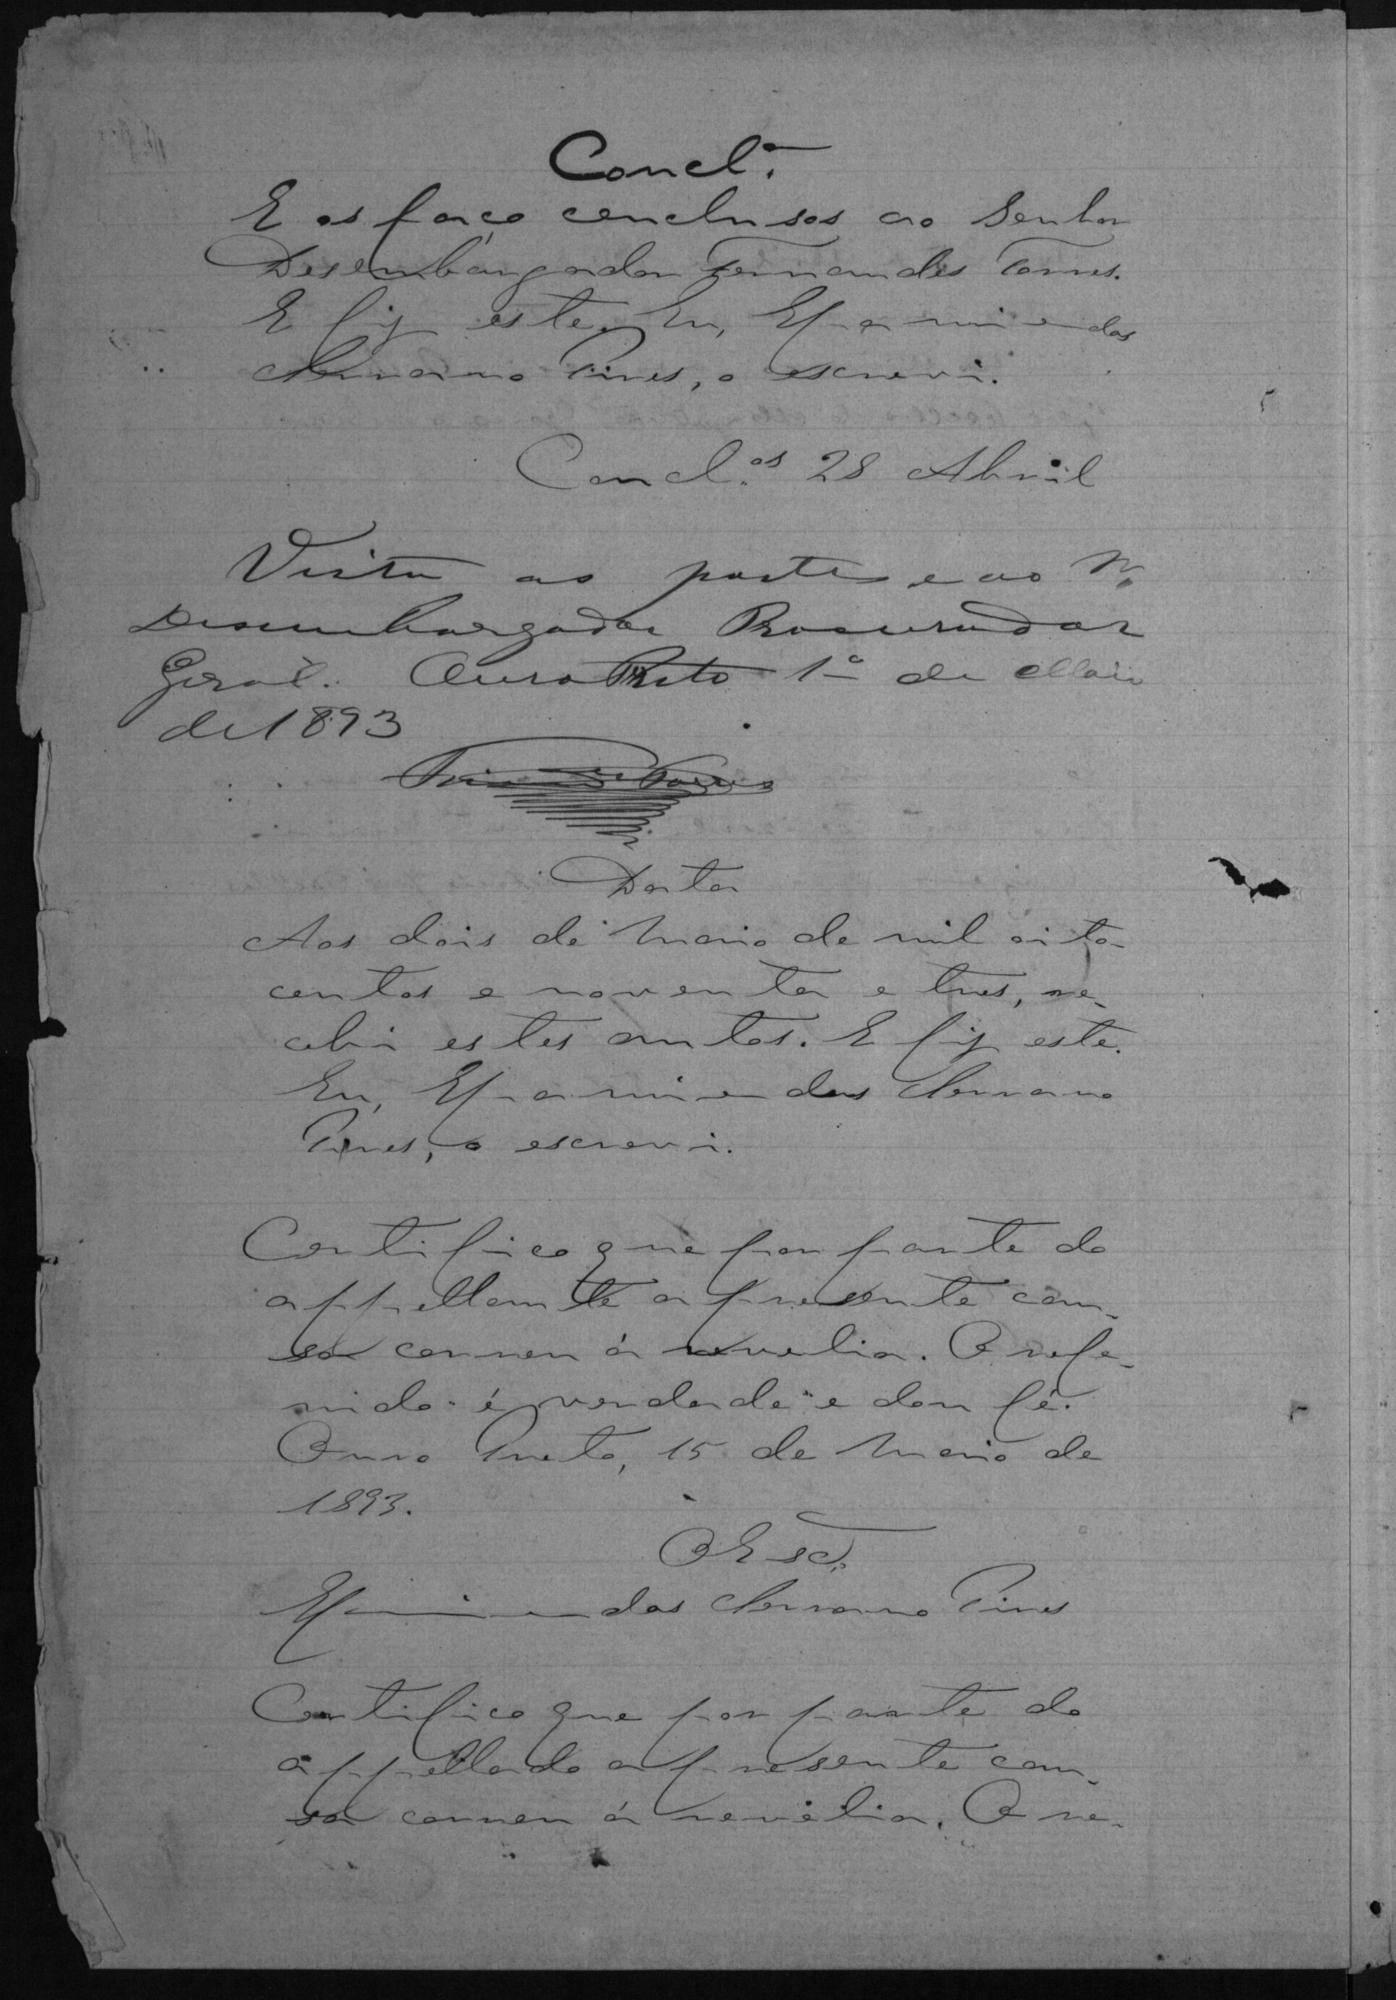 Concl.ᵃᵒ
E os faço conclusos ao Senhor
Desembargador Fernandes Torres.
E fiz este. Eu, Epaminondas
Serrano Pires, o escrevi.
Concl.ᵒˢ 28 Abril
Vista as partes e ao
Desembargador Procurador
Geral. Ouro Preto 1º de Maio
de 1893
Torres
Data
Aos dois de Maio de mil oito-
centos e noventa e tres, re-
cebi estes autos. E fiz este.
Eu, Epaminondas Serrano
Pires, o escrevi.
Certifico que por parte do
appellante a presente cau-
sa correu á revelia. O refe-
rido é verdade e dou fé.
Ouro Preto, 15 de Maio de
1893.
O Esc.ᵃᵒ
Epaminondas Serrano Pires
Certifico que por parte do
appellado a presente cau-
sa correu á revelia. O re-